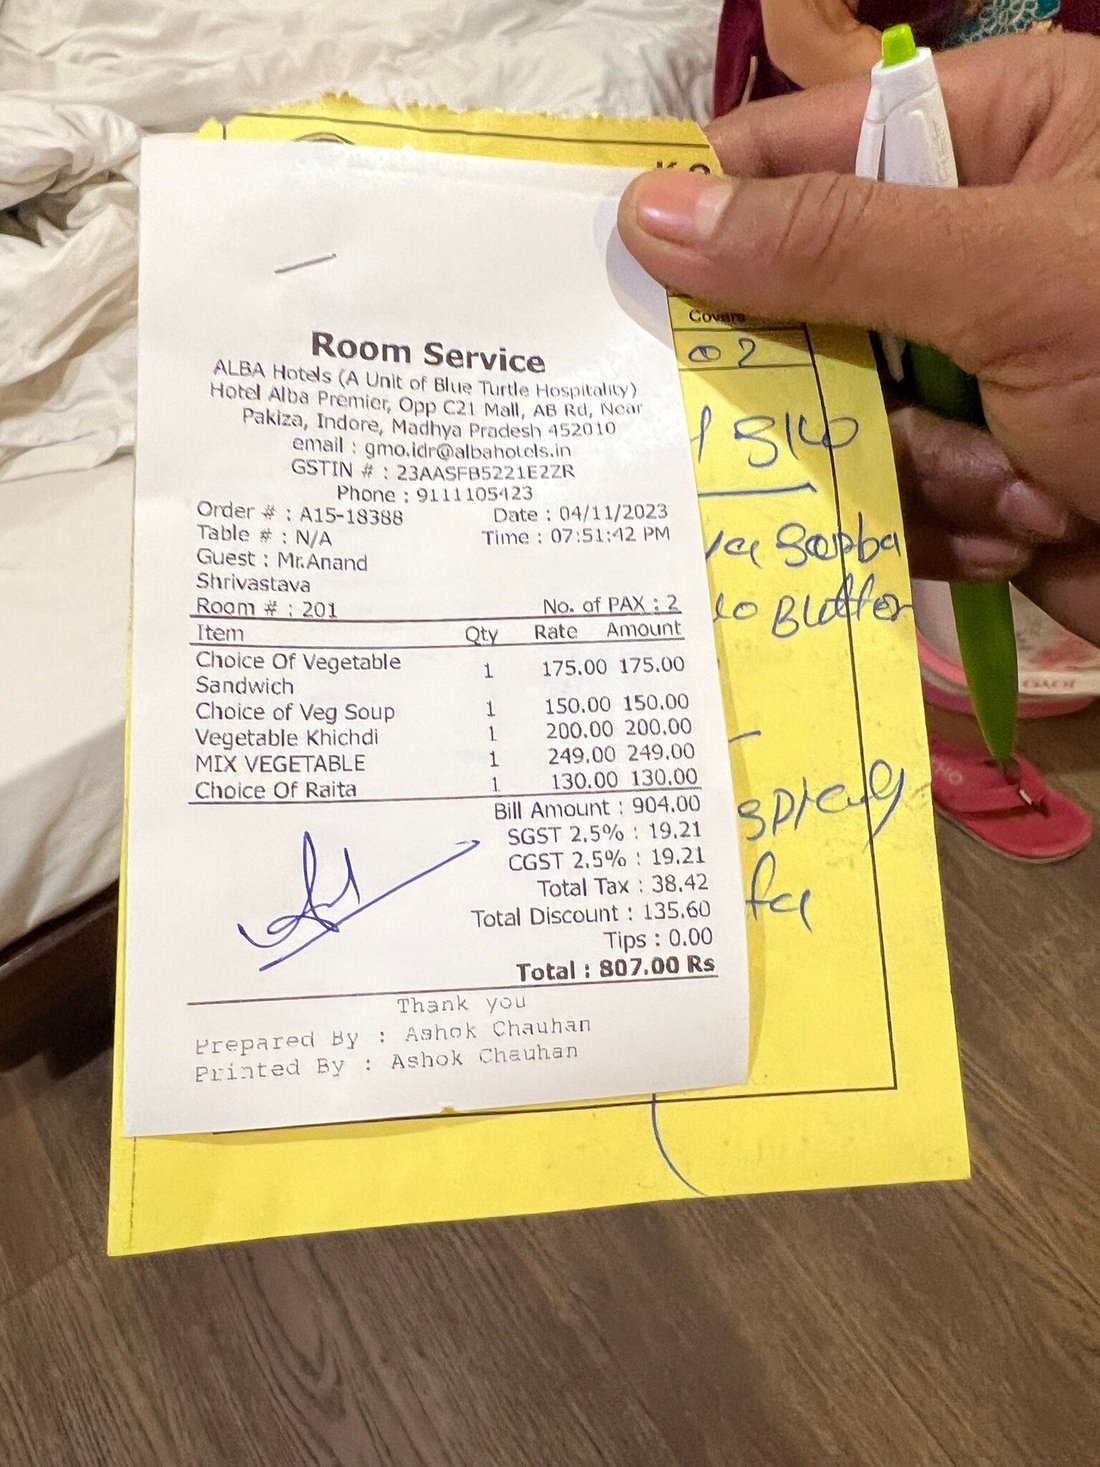 Room Service
ALBA Hotels (A Unit of Blue Turtle Hospitality)
Hotel Alba Premier, Opp C21 Mall, AB Rd, Near
Pakiza, Indore, Madhya Pradesh 452010
email : gmo.idr@albahotels.in
GSTIN # : 23AASFB5221E2ZR
Phone : 9111105423
Order # : A15-18388 Date : 04/11/2023
Table # : N/A Time : 07:51:42 PM
Guest : Mr.Anand
Shrivastava
Room # : 201 No. of PAX : 2
Item Qty Rate Amount
Choice Of Vegetable 1 175.00 175.00
Sandwich
Choice of Veg Soup 1 150.00 150.00
Vegetable Khichdi 1 200.00 200.00
MIX VEGETABLE 1 249.00 249.00
Choice Of Raita 1 130.00 130.00
Bill Amount : 904.00
SGST 2.5% : 19.21
CGST 2.5% : 19.21
Total Tax : 38.42
Total Discount : 135.60
Tips : 0.00
Total : 807.00 Rs
Thank you
Prepared By : Ashok Chauhan
Printed By : Ashok Chauhan
Covers
02
Butter